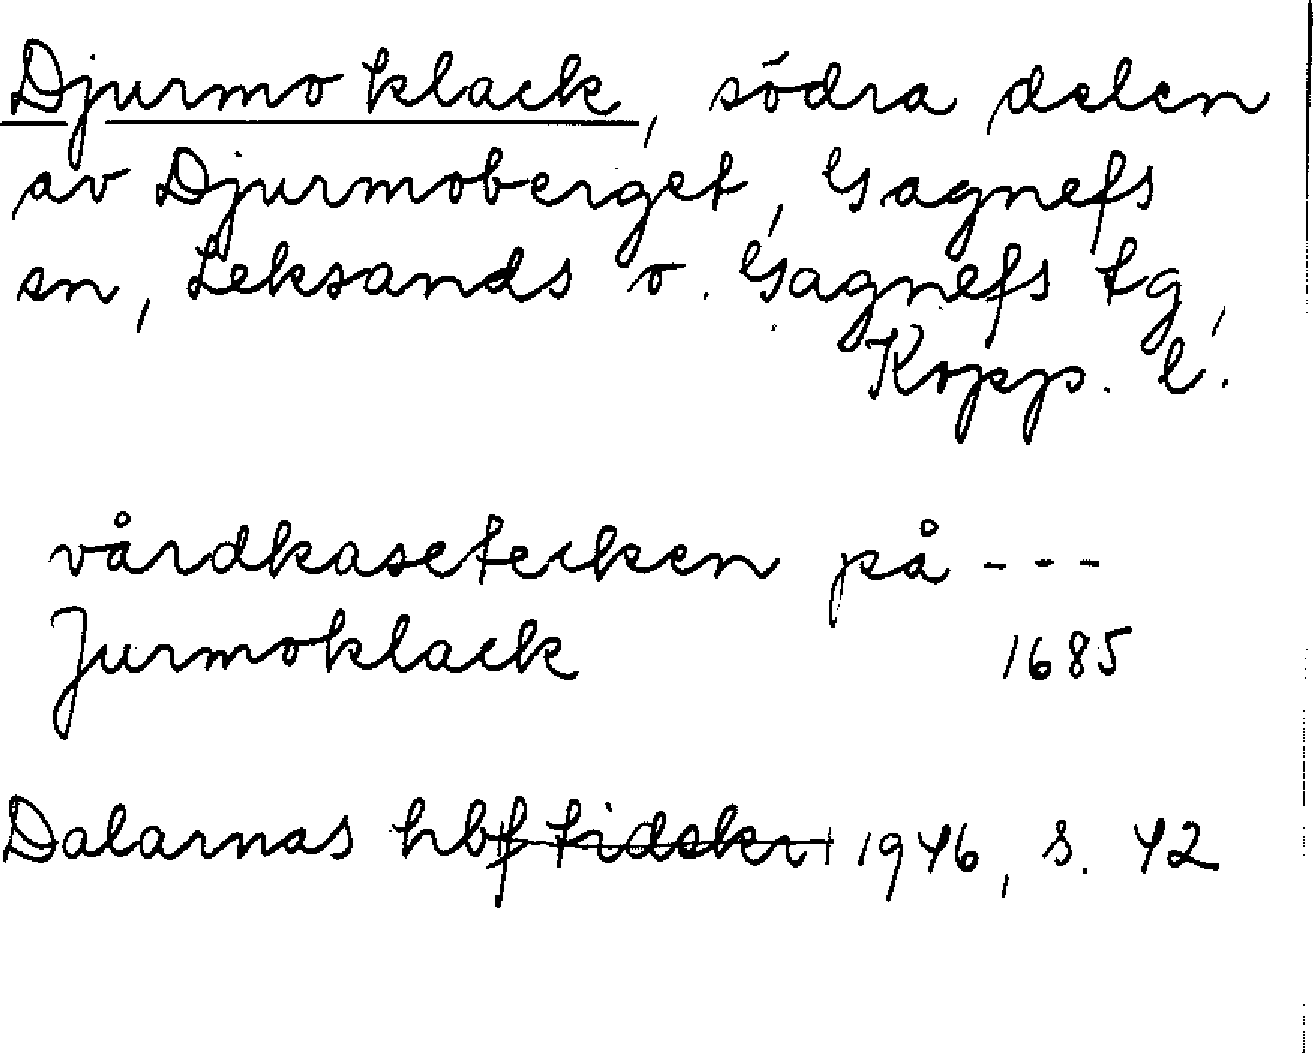 Djurmo klack, södra delen
av Djurmoberget, Gagnefs
sn, Leksands o. Gagnefs tg,
Kopp. l.
vårdkasetecken på ---
Jurmoklack 1685
Dalarnas hbf tidskr 1946, s. 42